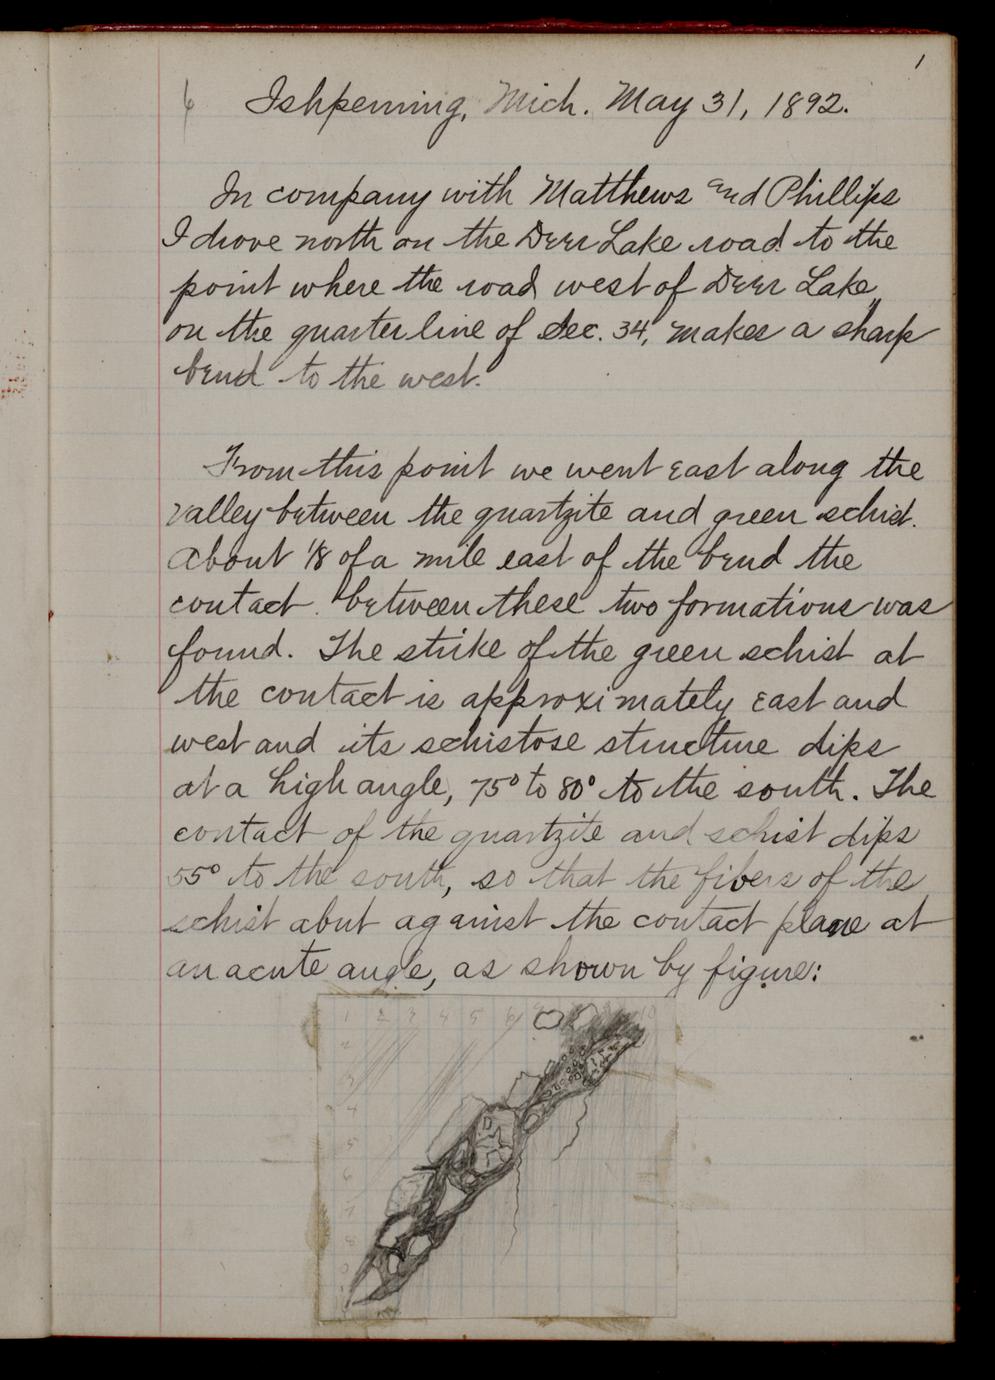 1
Ishpeming, Mich. May 31, 1892.
In company with Matthews and Phillips
I drove north on the Deer Lake road to the
point where the road west of Deer Lake,
on the quarter line of Sec. 34, makes a sharp
bend to the west.
From this point we went east along the
valley between the quartzite and green schist.
About 1/8 of a mile east of the bend the
contact between these two formations was
found. The strike of the green schist at
the contact is approximately east and
west and its schistose structure dips
at a high angle, 75° to 80° to the south. The
contact of the quartzite and schist dips
55° to the south, so that the fibers of the
schist abut against the contact plane at
an acute angle, as shown by figure:
1 2 3 4 5 6 9 10
2
3
4
5
6
7
8